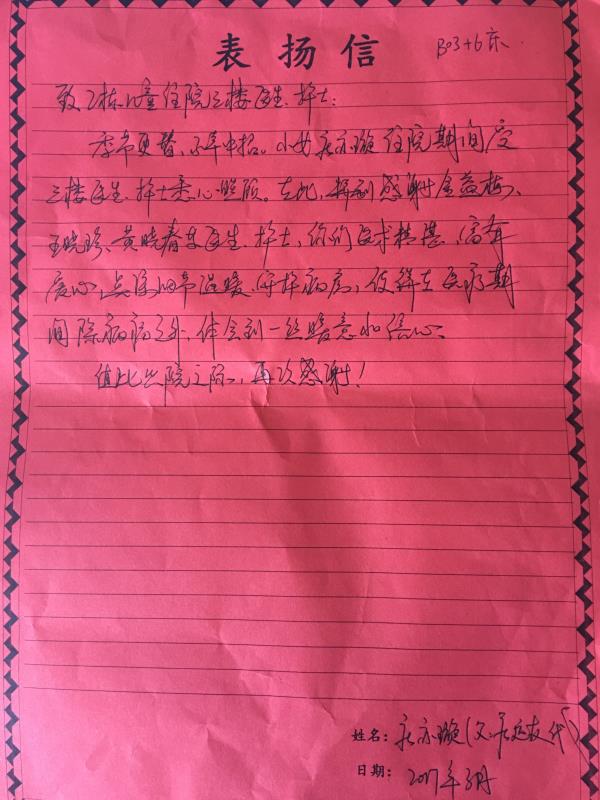 表扬信
B03+6床
致2栋儿童住院三楼医生、护士：
季节更替，不幸中招。小女亦璇住院期间受
三楼医生、护士悉心照顾。在此，特别感谢金益梅、
王晓珍、黄晓春等医生、护士，你们医术精湛、富有
爱心，点滴细节温暖、守护病房，使得在医疗期
间除病痛之外，体会到一丝暖意和信心。
值此出院之际，再次感谢！
姓名：亦璇（父：代）
日期：2017年3月